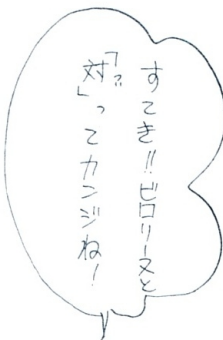 すてき!!ピロリーヌと
「対」ってカンジね!